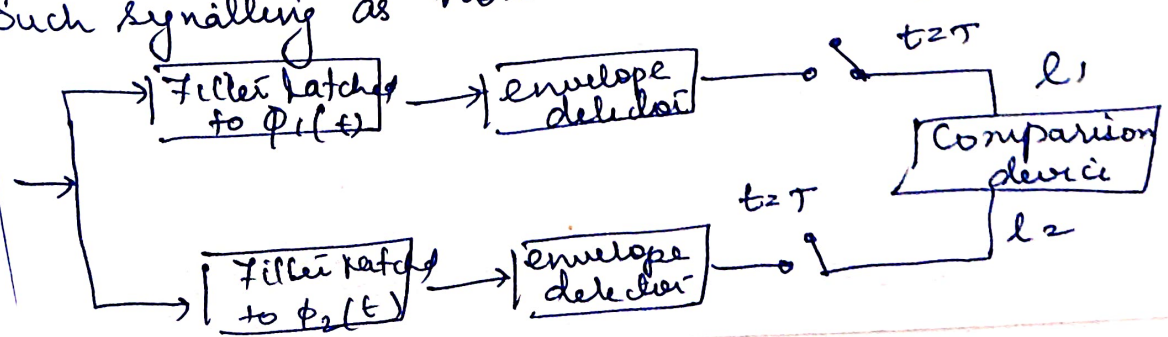 Such signalling as
Filter Matched
to φ₁(t)
envelope
detector
t=T
l₁
Comparision
device
t=T
l₂
Filter Matched
to φ₂(t)
envelope
detector